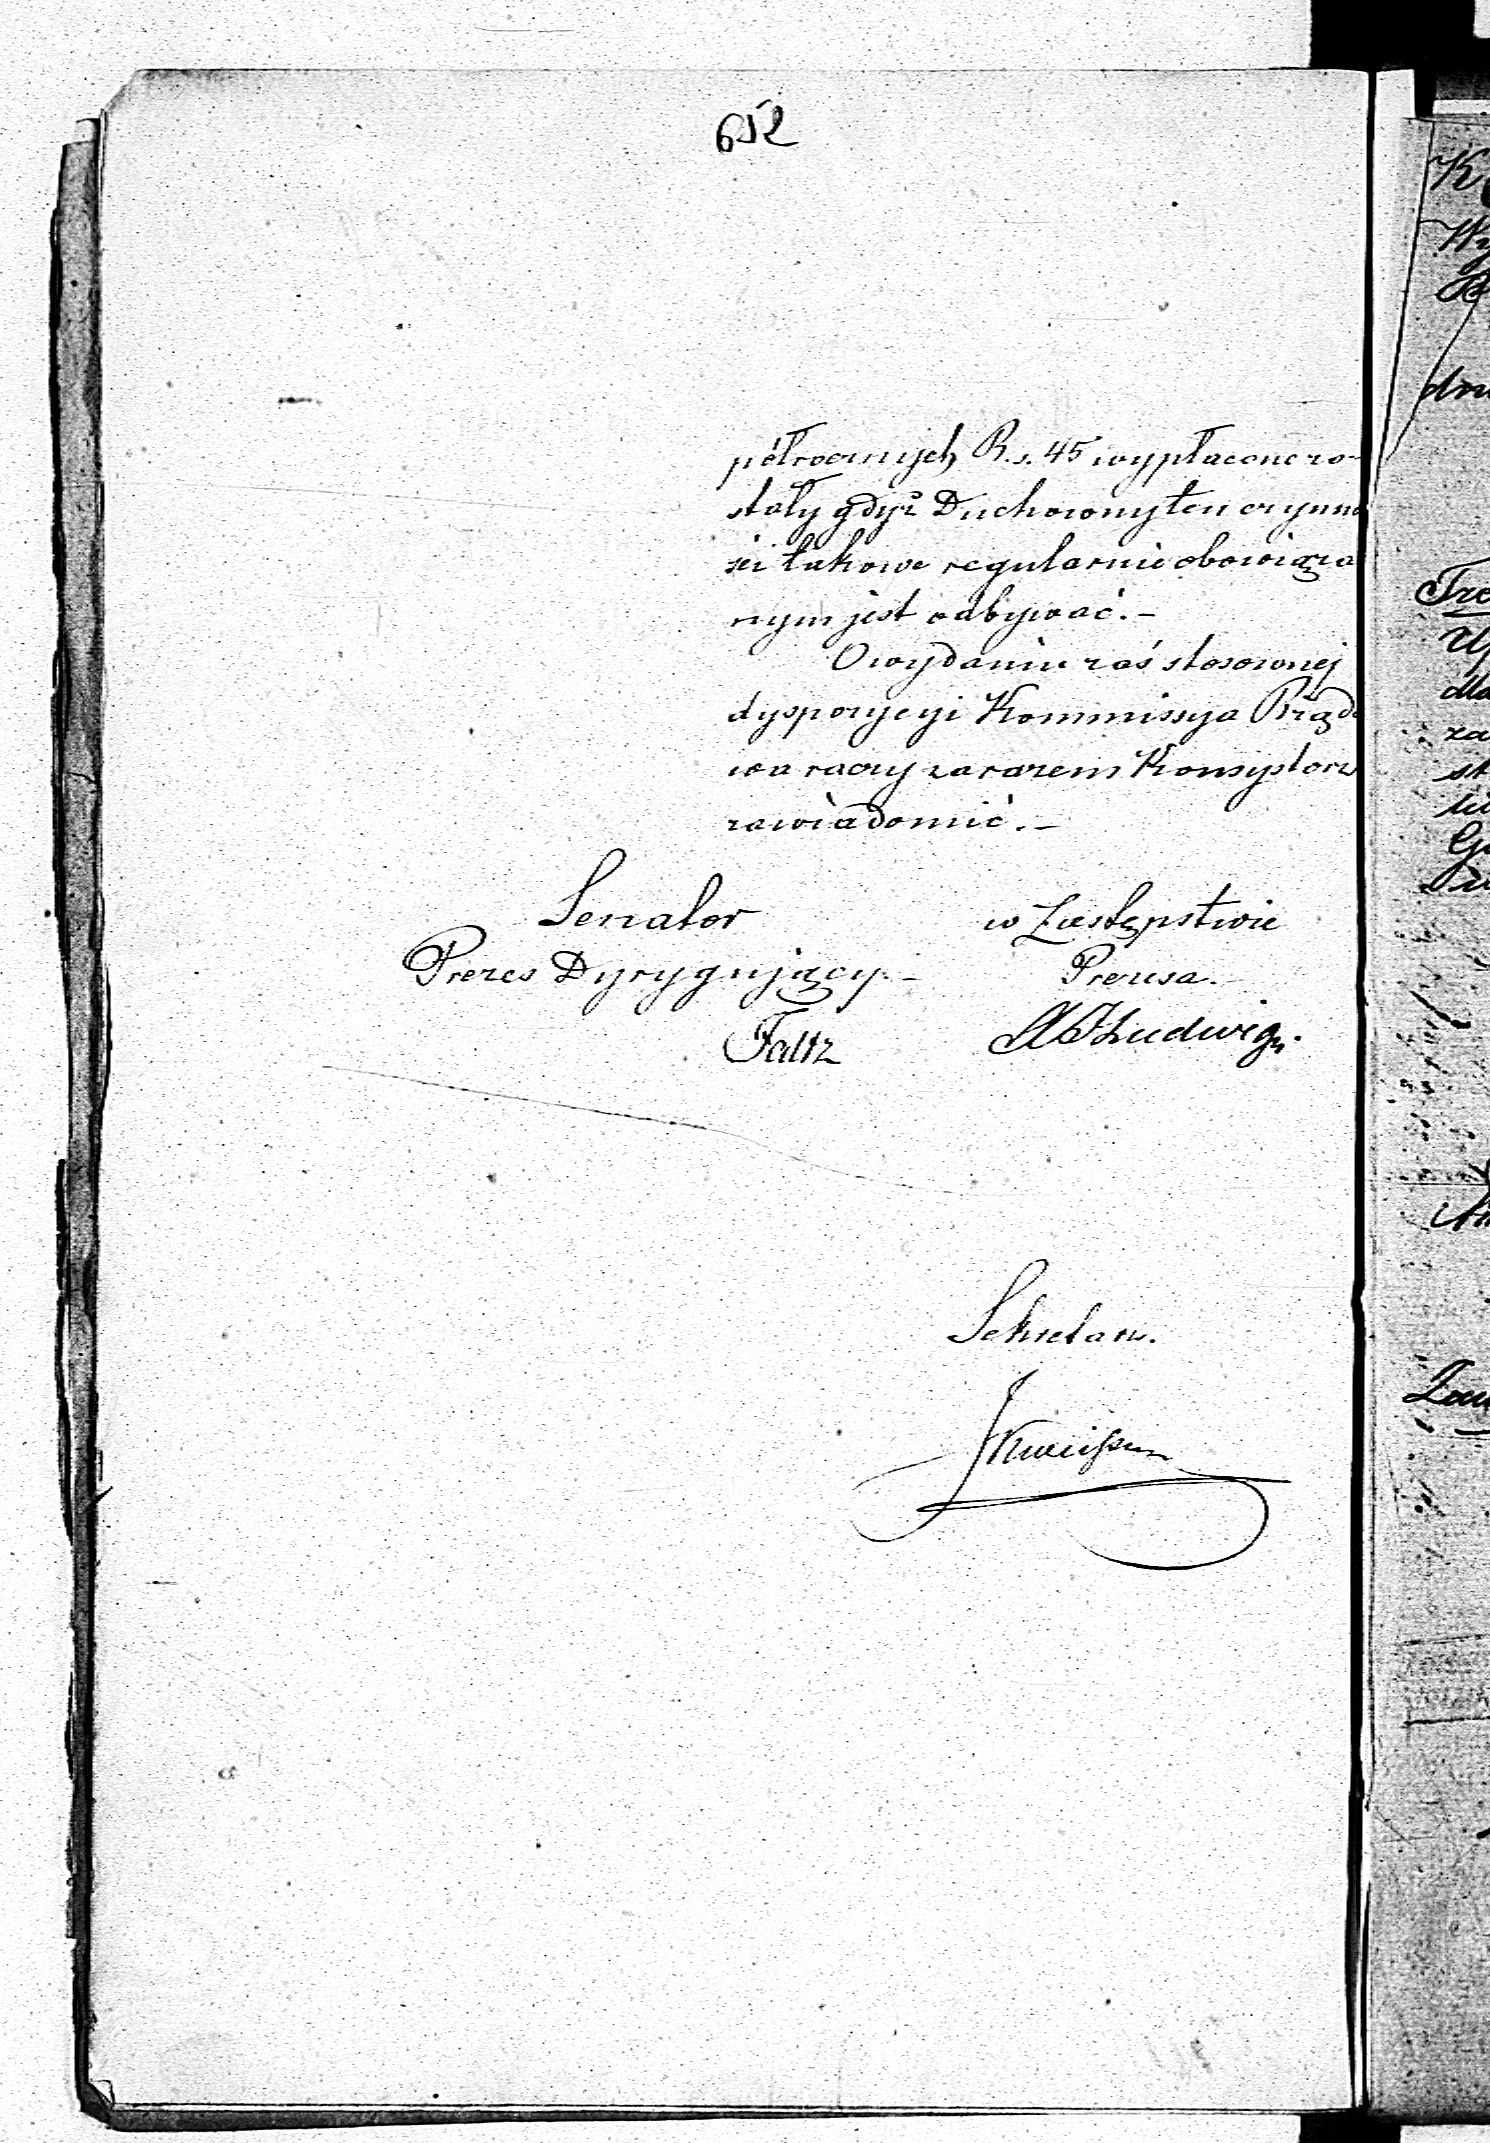 652
półrocznych R.s. 45 wypłacone zo-
stały gdyż Duchowny ten czynno
ści takowe regularnie obowiąza
nym jest odbywać.-
O wydaniu zaś stosownej
dyspozycyi Kommissya Rząd
wa raczy zarazem Konsystorz
zawiadomić.-
Senator w Zastępstwie
Prezes Dyrygujący.- Prezesa.-
Faltz Ludwig.
Sekretarz.
K
dru
Tre
za
st